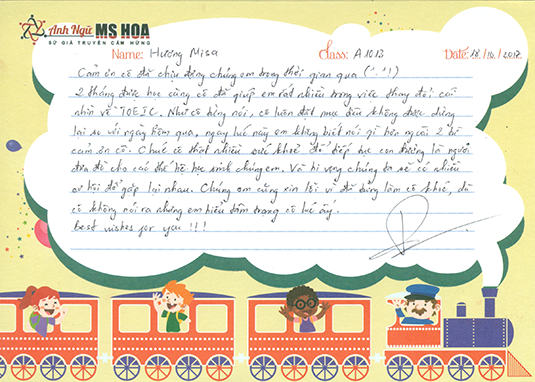 Anh Ngữ MS HOA
SỨ GIẢ TRUYỀN CẢM HỨNG
Name: Hương Misa Class: A1013 Date: 18/10/2017
Cảm ơn cô đã chịu đựng chúng em trong thời gian qua (^.^!)
2 tháng được học cùng cô đã giúp em rất nhiều trong việc thay đổi cái
nhìn về TOEIC. Như cô từng nói, cô luôn đặt mục tiêu không được dừng
lại so với ngày hôm qua, ngay lúc này em không biết nói gì hơn ngoài 2 từ
cảm ơn cô. Chúc cô thật nhiều sức khoẻ để tiếp tục con đường là người
đưa đò cho các thế hệ học sinh chúng em. Và hi vọng chúng ta sẽ có nhiều
cơ hội để gặp lại nhau. Chúng em cũng xin lỗi vì đã từng làm cô khóc, dù
cô không nói ra nhưng em hiểu tâm trạng cô lúc ấy.
Best wishes for you !!!